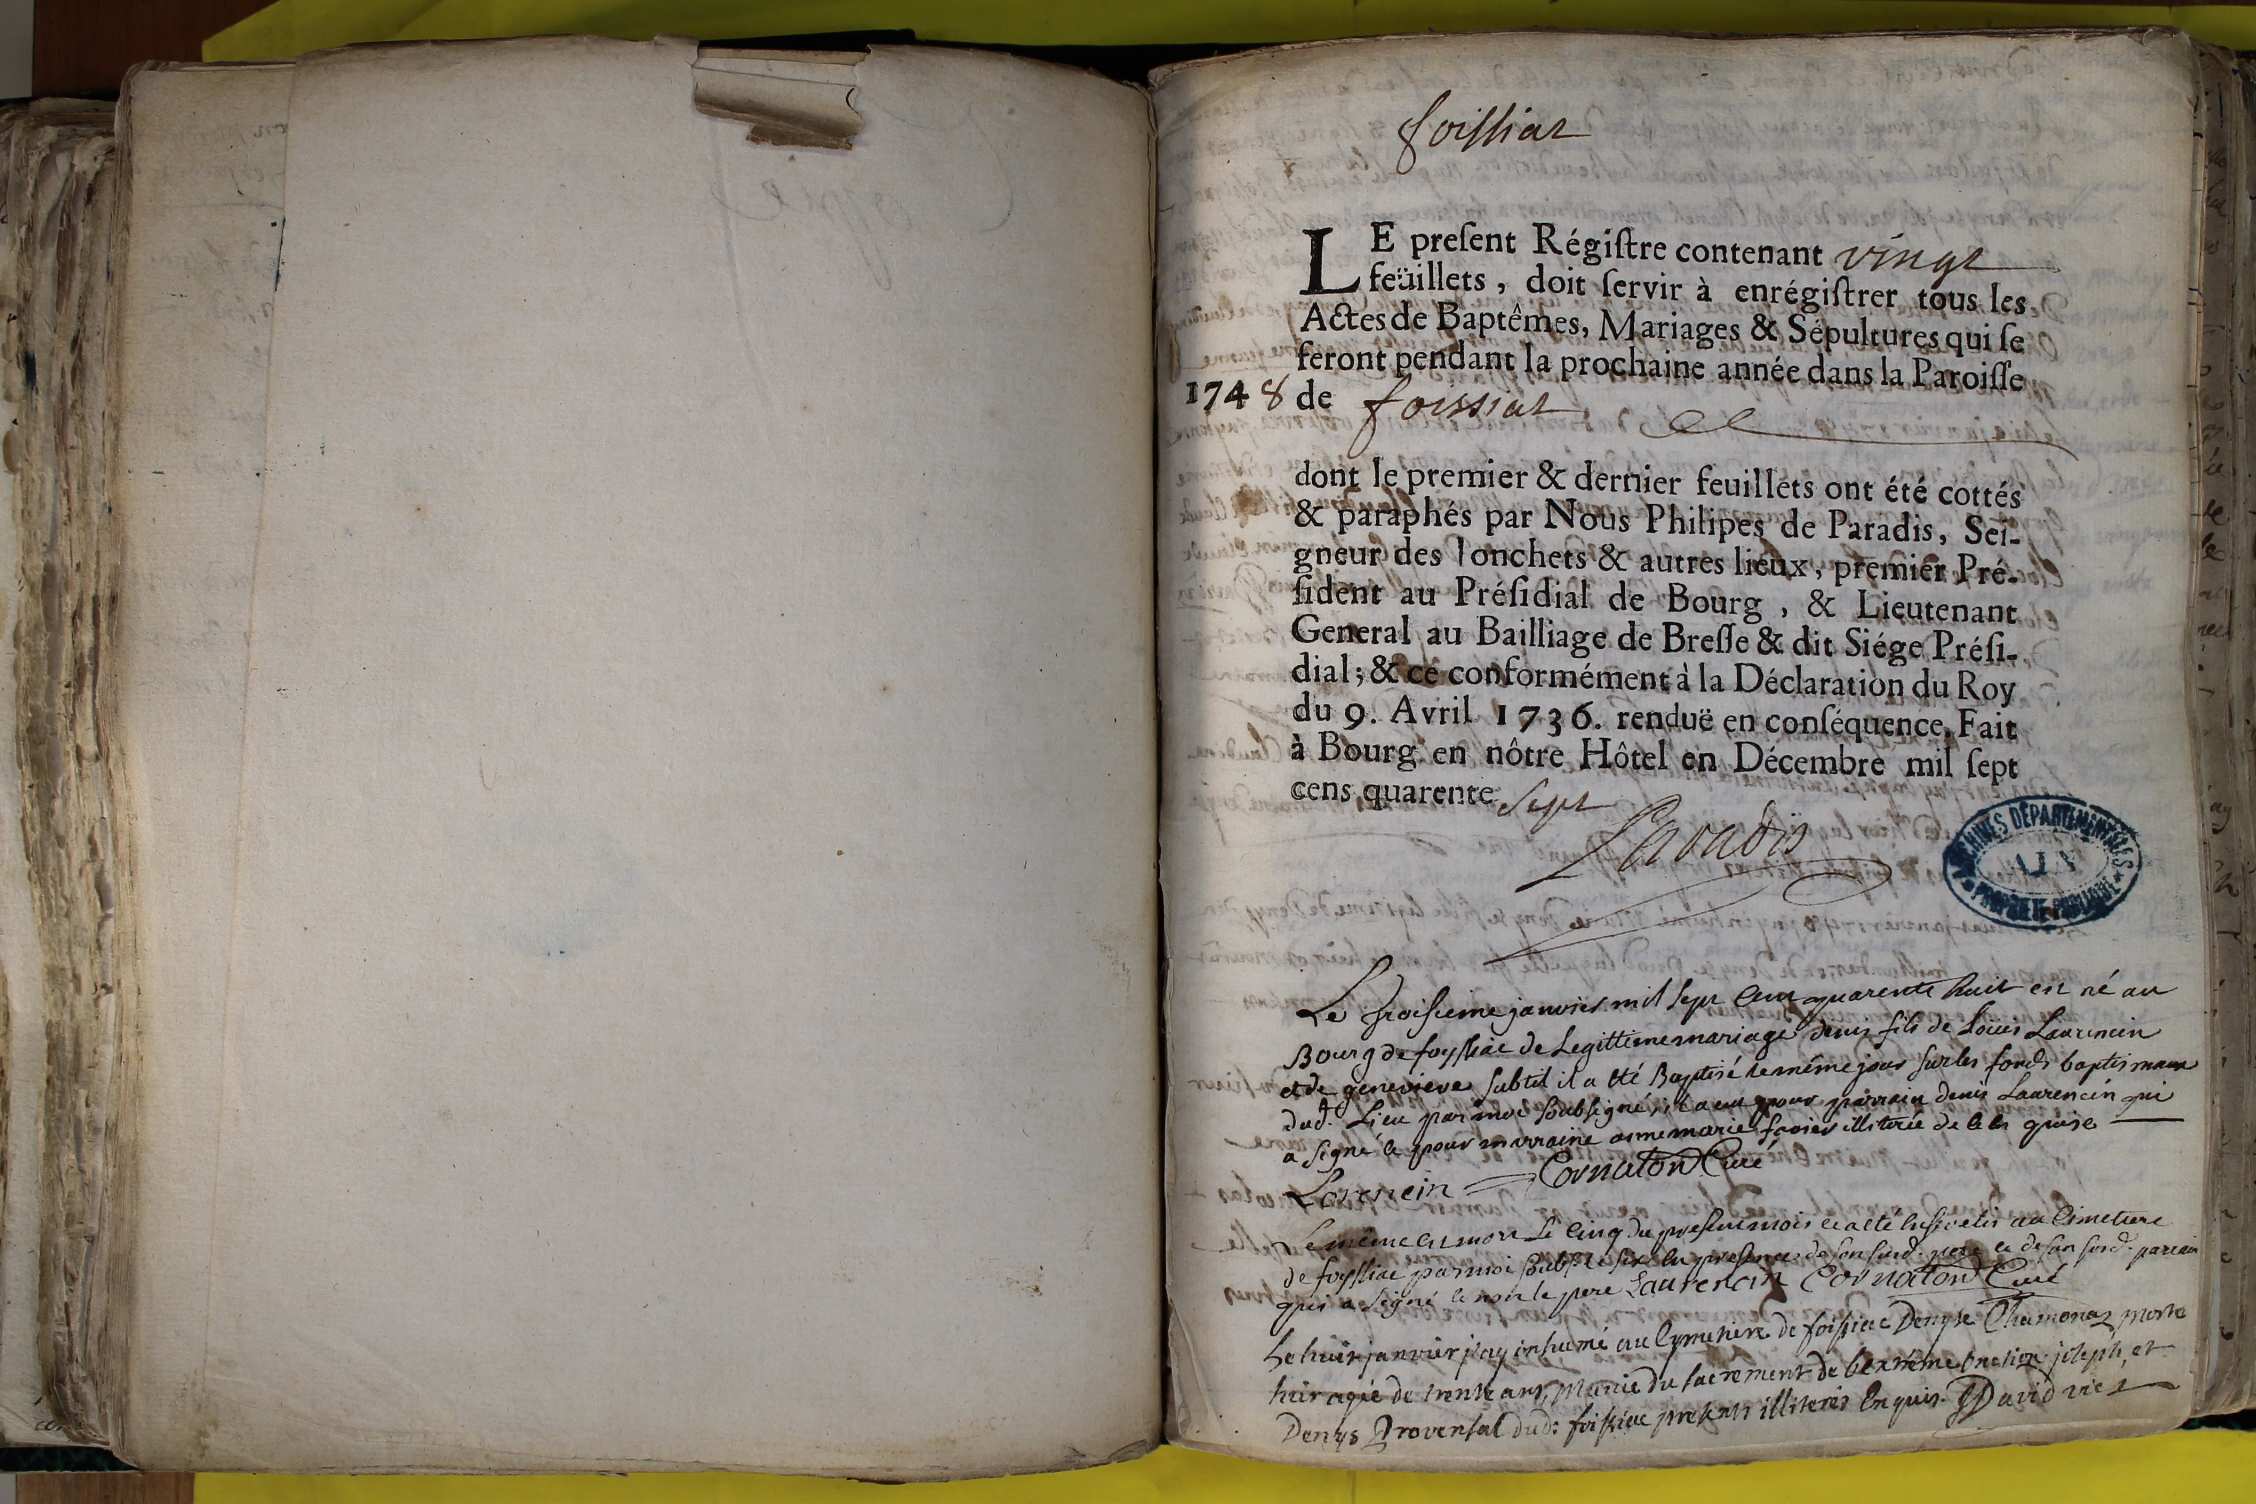 foissiat
LE present Régistre contenant vingt
feüillets, doit servir à enrégistrer tous les
Actes de Baptêmes, Mariages & Sépultures qui se
feront pendant la prochaine année dans la Paroisse
1748 de foissiat
dont le premier & dernier feuillets ont été cottés
& paraphés par Nous Philipes de Paradis, Sei-
gneur des Jonchets & autres lieux, premier Pré-
sident au Présidial de Bourg, & Lieutenant
General au Bailliage de Bresse & dit Siége Prési-
dial; & ce conformément à la Déclaration du Roy
du 9. Avril 1736. renduë en conséquence, Fait
à Bourg en nôtre Hôtel en Décembre mil sept
cens quarente sept
Paradis
ARCHIVES DÉPARTEMENTALES
AIN
PROPRIÉTÉ PUBLIQUE
Le troisieme janvier mil sept cent quarente huit est né au
Bourg de foyssiac de Legittime mariage denis fils de Louis Laurencin
et de genevieve subtil il a été Baptisé le même jour sur les fonds baptismaux
dud. Lieu par moi soubsigné, il a eut pour parrain denis Laurencin qui
a signé et pour marraine anne marie favier illiterée de ce en quise
Lorencin Cornaton Curé
Le même est mort Le Cinq du present mois et a été Enseveli au Cimetiere
de foyssiac par moi soubsé le six En presence de son susd. pere et de son susd. parrain
qui a signé et non le pere Laurencin Cornaton Curé
Le huit janvier j'ay inhumé au Cymetiere de foissiac Denyse Chamonaz morte
hier agée de trente ans, munie du sacrement de l'extrême onction joseph, et
Denys Provensal dud: foissiac presents illiterés Enquis. David vic